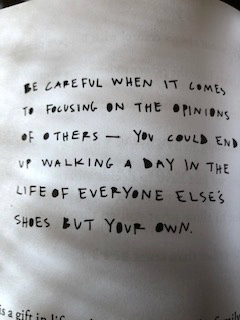 BE CAREFUL WHEN IT COMES
TO FOCUSING ON THE OPINIONS
OF OTHERS — YOU COULD END
UP WALKING A DAY IN THE
LIFE OF EVERYONE ELSE'S
SHOES BUT YOUR OWN.
is a gift in